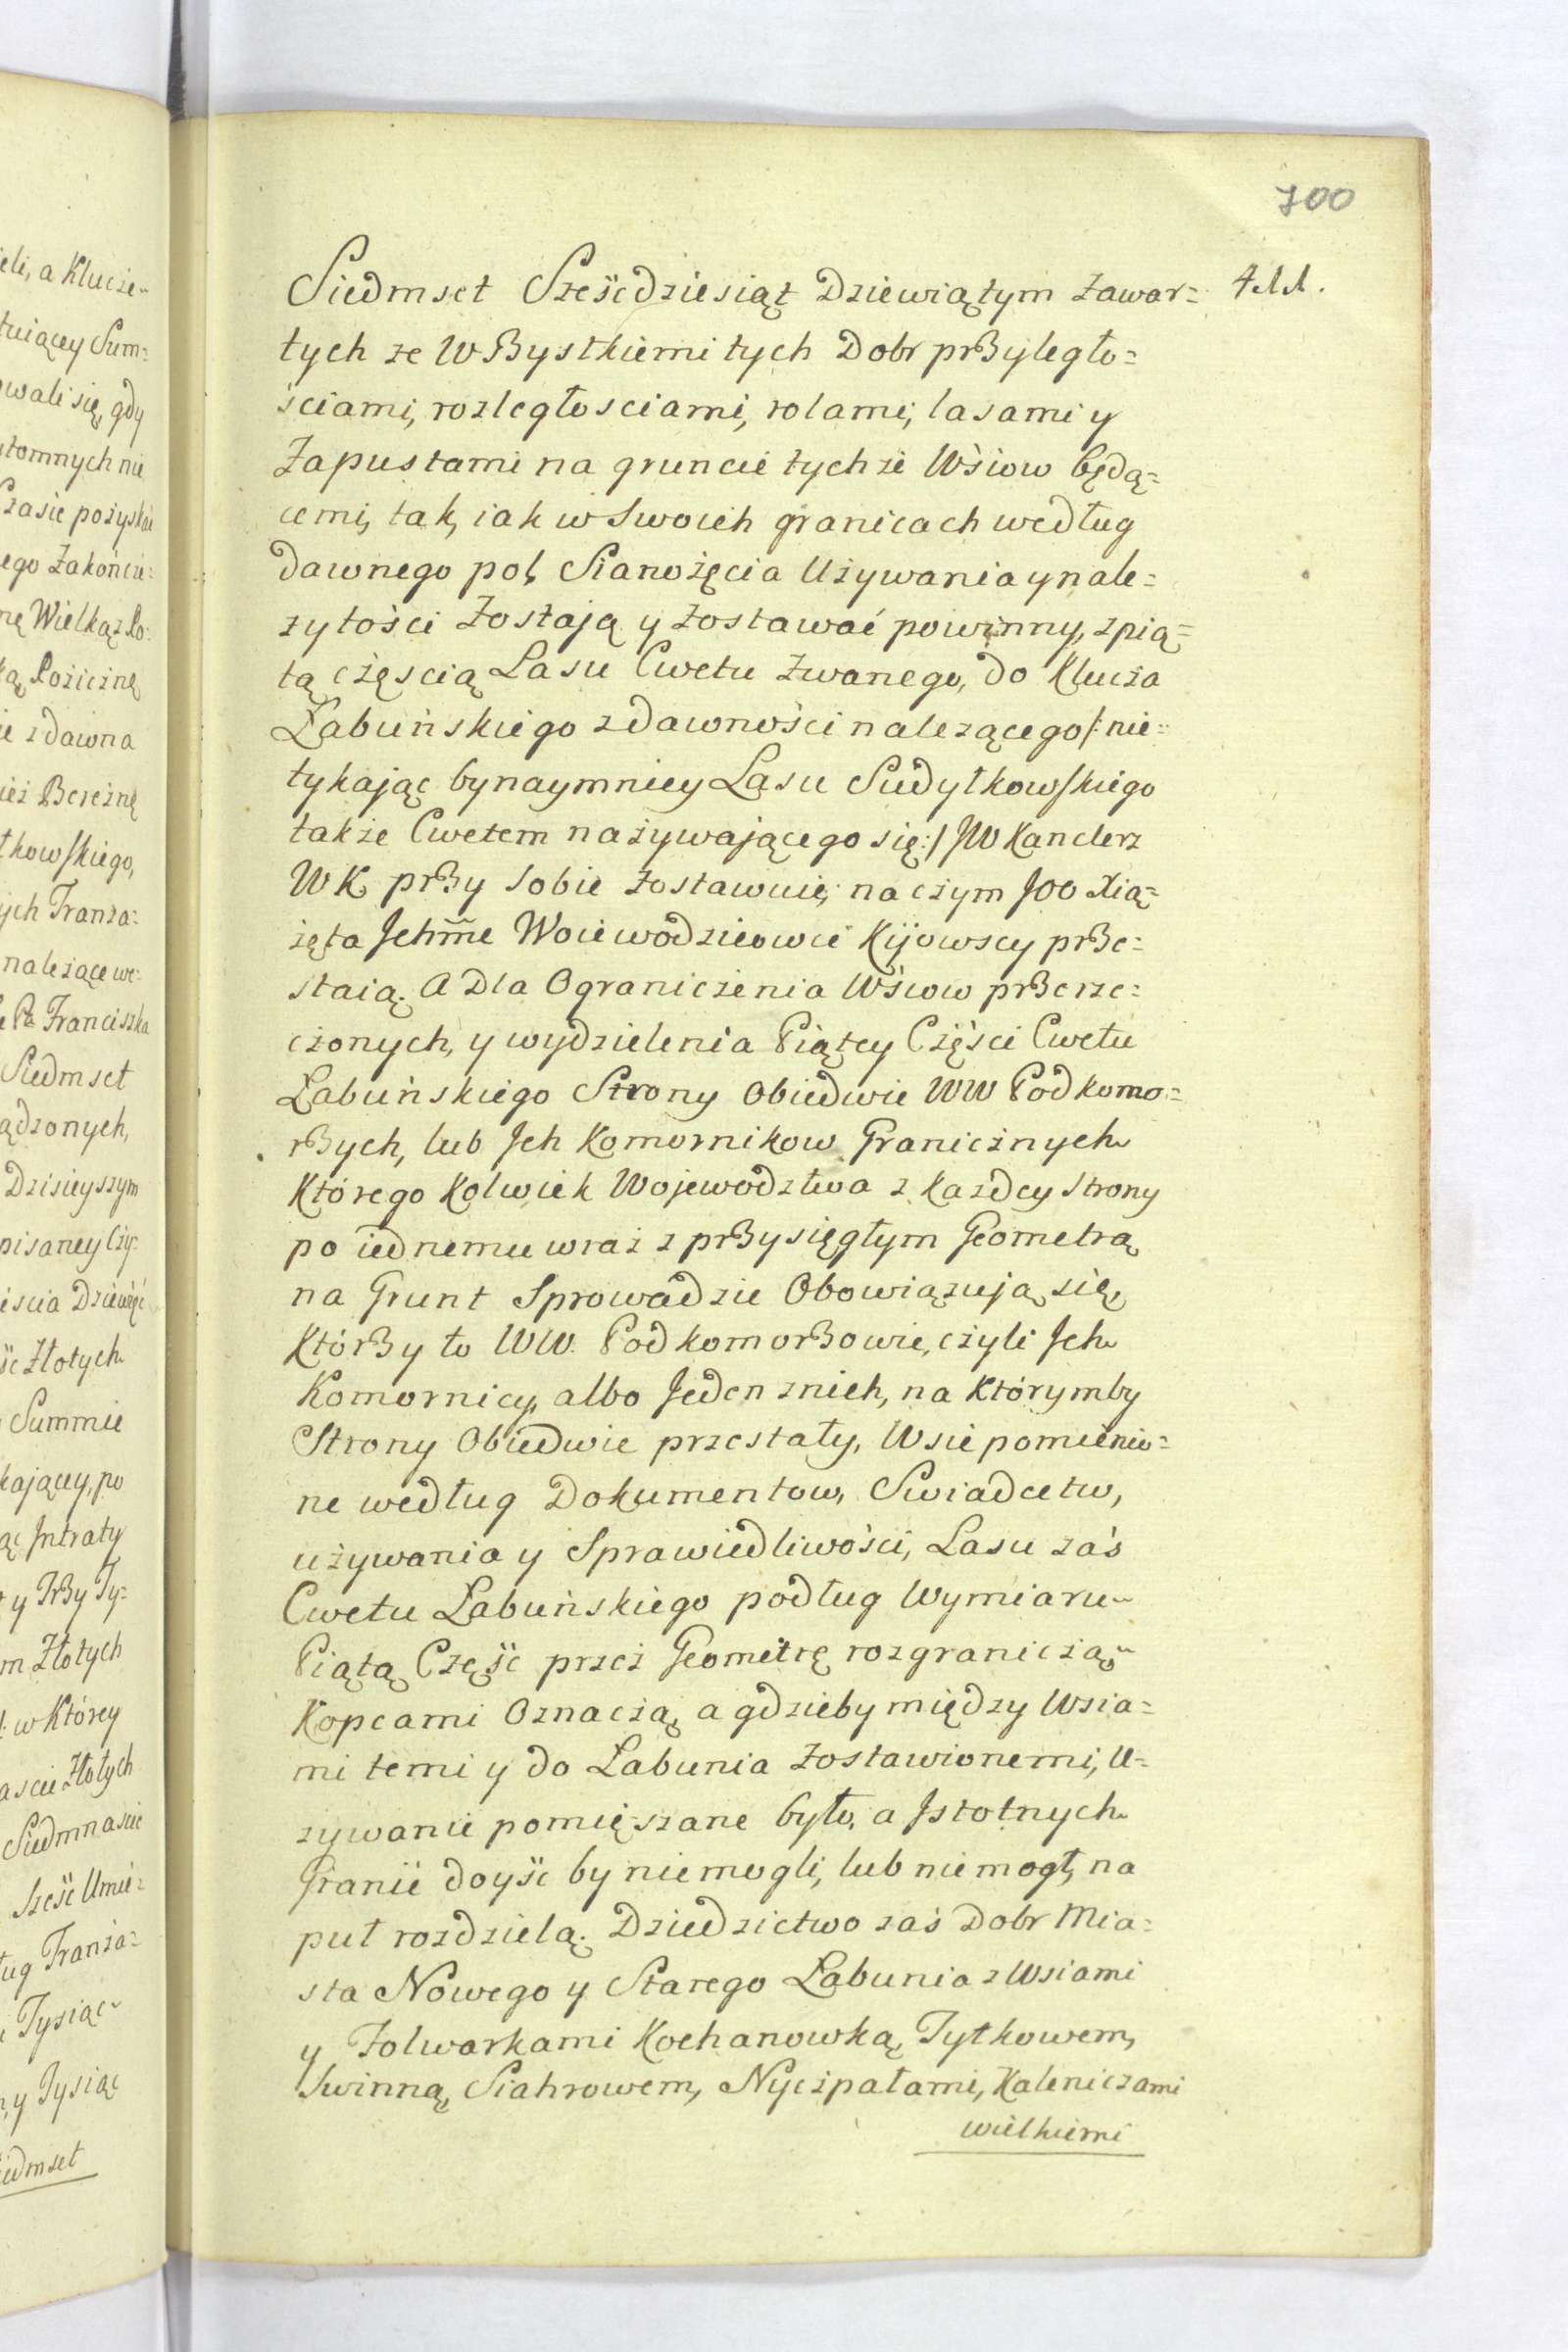 700
Siedmset Sześćdziesiąt Dziewiątym zawar=
tych ze Wszystkiemi tych Dobr przyległo=
ściami, rozległosciami, rolami, lasami y
Zapustami na gruncie tychże Wsiow będą=
cemi, tak, iak w Swoich granicach według
dawnego pol, Sianożęcia Używania y nale=
żytości zostają y zostawać powinny, z pią=
tą częscią Lasu Cwetu zwanego, do Klucza
Łabuńskiego z dawności należącego /: nie=
tykając bynaymniey Lasu Sudyłkowskiego
także Cwetem nazywającego się :/ JW Kanclerz
WK przy sobie zostawuie; na czym JOO Xią=
żęta Jchm̃e Woiewodzicowie Kijowscy prze=
staią. A Dla Ograniczenia Wsiow przerze=
czonych, y wydzielenia Piątey Części Cwetu
Łabuńskiego Strony obiedwie WW Podkomo=
rzych, lub Jch Komornikow Granicznych
Którego kolwiek Wojewodztwa z każdey strony
po iednemu wraz z przysięgłym Geometrą
na Grunt Sprowadzić Obowiązują się,
Którzy to WW. Podkomorzowie, czyli Jch
Komornicy, albo Jeden z nich, na Którymby
Strony Obiedwie przestały, Wsie pomienio=
ne według Dokumentow, Swiadectw,
używania y Sprawiedliwości, Lasu zaś
Cwetu Łabuńskiego podług Wymiaru
Piątą Część przez Geometrę rozgraniczą
Kopcami Oznaczą, a gdzieby między Wsia=
mi temi y do Łabunia zostawionemi, U=
żywanie pomięszane było, a Jstotnych
Granic doyść by niemogli, lub niemogł, na
puł rozdzielą. Dziedzictwo zaś Dobr Mia=
sta Nowego y Starego Łabunia z Wsiami
y Folwarkami Kochanowką, Tytkowem,
Swinną, Siahrowem, Nyczpałami, Kaleniczami
wielkiemi